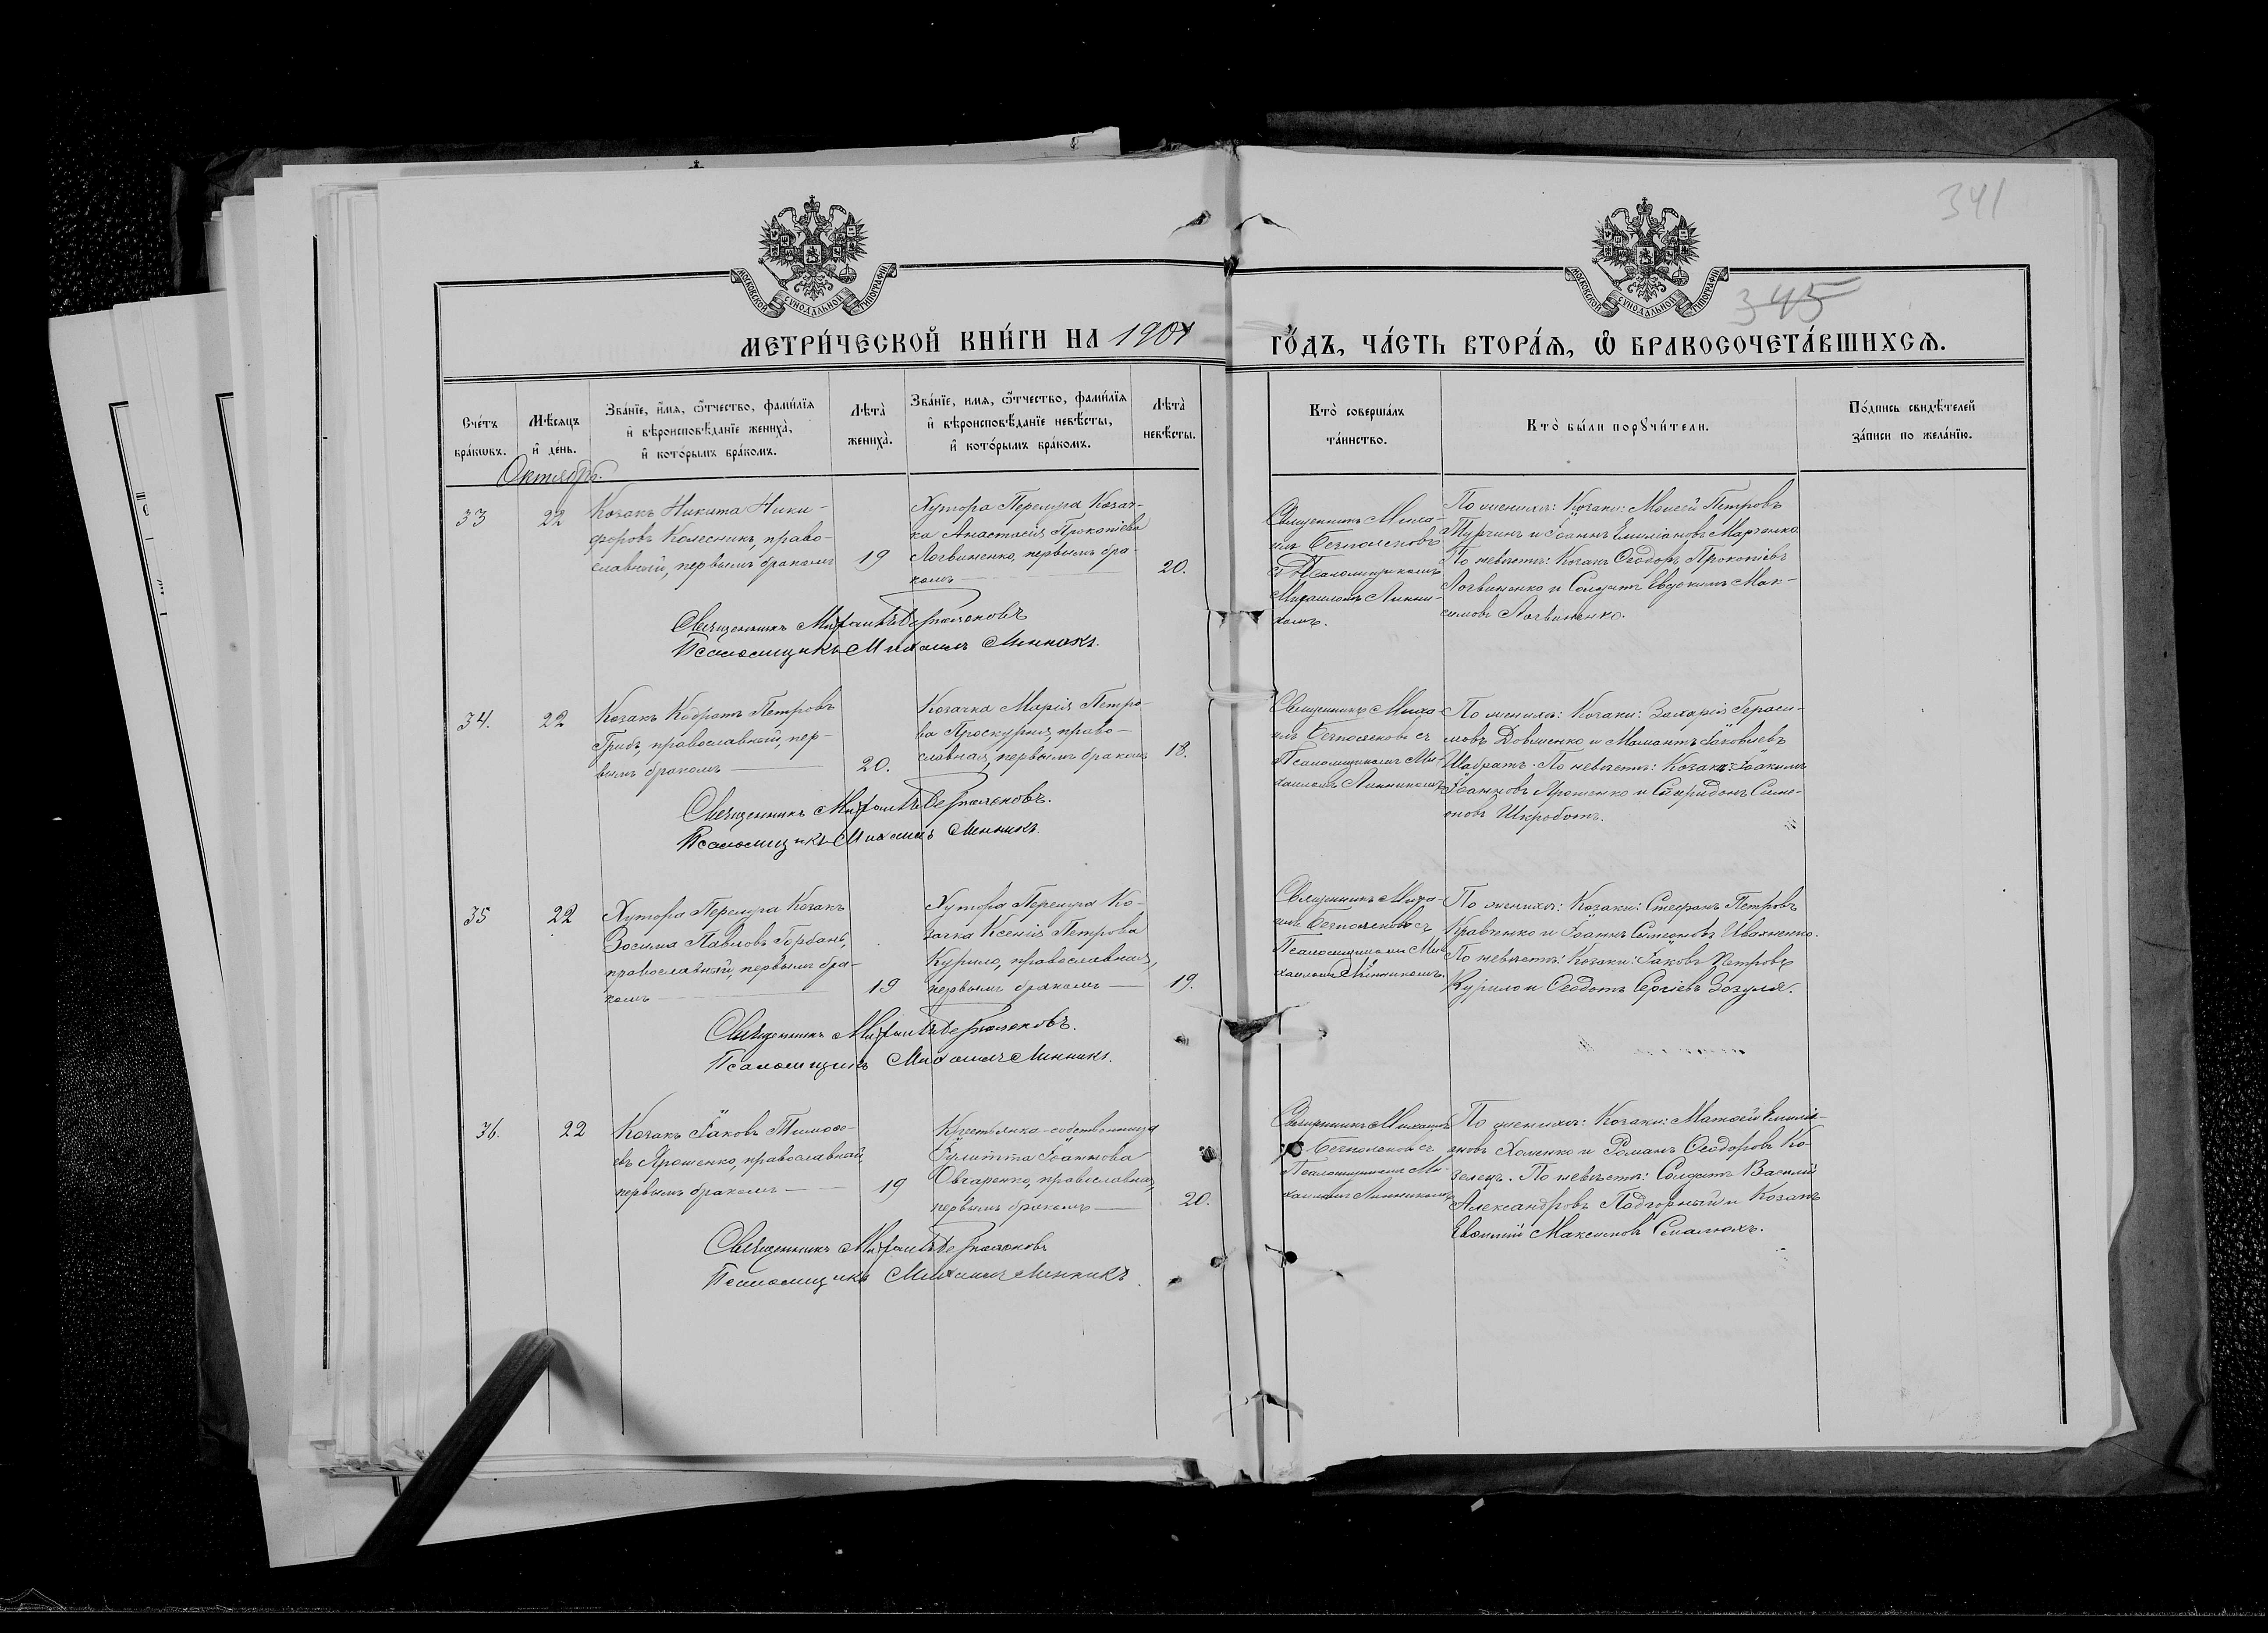 341
345
МОСКОВСКОЙ СУНОДАЛЬНОЙ ТИПОГРАФІИ
МОСКОВСКОЙ СУНОДАЛЬНОЙ ТИПОГРАФІИ
МЕТРИ́ЧЕСКОЙ КНИ́ГИ НА 1901 ГО́ДЪ, ЧА́СТЬ ВТОРА́Ѧ, Ѿ БРАКОСОЧЕТА́ВШИХСѦ.
Сче́тъ
бра́кѡвъ.
Мѣ́сяцъ
и҆ де́нь.
Зва́нїе, и҆́мѧ, ѻ҆́тчество, фами́лїѧ
и҆ вѣроисповѣ́данїе жениха̀,
и҆ кото́рымъ бра́комъ.
Лѣта̀
жениха̀.
Зва́нїе, имѧ, ѻ҆́тчество, фами́лїѧ
и҆ вѣроисповѣ́данїе невѣ́сты,
и҆ кото́рымъ бра́комъ.
Лѣта̀
невѣ́сты.
Кто̀ соверша́лъ
та́инство.
Кто̀ бы́ли порꙋчи́тели.
По́дпись свидѣ́телей
за́писи по жела́нїю.
Октябрь.
33
22
Козакъ Никита Ники-
форовъ Колесникъ, право-
славный, первымъ бракомъ
19
Хутора Перещра Козач-
ка Анастасія Прокопіева
Логвиненко, первымъ бра-
комъ
20.
Священникъ Миха-
илъ Безпалековъ
съ Псаломщикомъ
Михаиломъ Линни-
комъ.
По женихѣ: Козаки: Моисей Петровъ
и Іоаннъ Емиліановъ Марченко.
По невѣстѣ: Козакъ Ѳеодоръ Прокопіевъ
Логвиненко и Солдатъ Евдокимъ Мак-
симовъ Логвиненко.
Священникъ Михаилъ Безпалековъ
Псаломщикъ Михаилъ Линникъ.
34.
22
Козакъ Кодратъ Петровъ
Грибъ, православный, пер-
вымъ бракомъ
20.
Козачка Марія Петро-
ва Проскурня, право-
славная, первымъ бракомъ
18.
Священникъ Миха-
илъ Безпалековъ съ
Псаломщикомъ Ми-
хаиломъ Линникомъ
По женихѣ: Козаки: Захарій Гераси-
мовъ Довженко и Мамантъ Іаковлевъ
Шабратъ. По невѣстѣ: Козаки: Іоакимъ
Іоанновъ Ярошенко и Спиридонъ Симе-
оновъ Шкроботъ.
Священникъ Михаилъ Безпалековъ.
Псаломщикъ Михаилъ Линникъ.
35
22
Хутора Перещра Козакъ
Зосима Павловъ Горбань,
православный, первымъ бра-
комъ
19
Хутора Перещра Ко-
зачка Ксенія Петрова
Курило, православная,
первымъ бракомъ
19.
Священникъ Миха-
илъ Безпалековъ съ
Псаломщикомъ Ми-
хаиломъ Линникомъ.
По женихѣ: Козаки: Стефанъ Петровъ
Кравченко и Іоаннъ Симеоновъ Ивахненко.
По невѣстѣ: Козаки: Іаковъ Петровъ
Курило и Ѳеодотъ Сергіевъ Зозуля.
Священникъ Михаилъ Безпалековъ.
Псаломщикъ Михаилъ Линникъ.
36.
22
Козакъ Іаковъ Тимоѳе-
евъ Ярошенко, православный,
первымъ бракомъ
19
Крестьянка-собственница
Іулитта Іоаннова
Овчаренко, православная,
первымъ бракомъ
20.
Священникъ Михаилъ
Безпалековъ съ
Псаломщикомъ Ми-
хаиломъ Линникомъ
По женихѣ: Козаки: Матѳей Емилія-
новъ Хоменко и Романъ Ѳеодоровъ Ко-
зелецъ. По невѣстѣ: Солдатъ Василій
Александровъ Подгорный и Козакъ
Евѳимій Максимовъ Смалюхъ.
Священникъ Михаилъ Безпалековъ
Псаломщикъ Михаилъ Линникъ